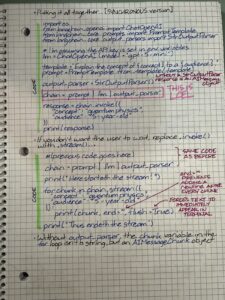 • Putting it all together: [SYNCHRONOUS VERSION]
CODE
import os
from langchain_openai import ChatOpenAI
from langchain_core.prompts import PromptTemplate
from langchain_core.output_parsers import StrOutputParser
# I'm assuming the API key is set in env variables
llm = ChatOpenAI(model="gpt-5-mini")
template = "Explain the concept of {concept} to a {audience}."
prompt = PromptTemplate.from_template(template)
output_parser = StrOutputParser()
chain = prompt | llm | output_parser
THIS IS
LCEL
response = chain.invoke({
"concept": "quantum physics",
"audience": "5-year-old"
})
print(response)
• If you don't want the user to wait, replace .invoke()
with .stream():
CODE
#(previous code goes here)
chain = prompt | llm | output_parser
SAME CODE
AS BEFORE
print("Here starteth the stream:")
for chunk in chain.stream({
"concept": "quantum physics",
"audience": "5-year-old"
}):
print(chunk, end="", flush=True)
print("Thus endeth the stream")
end=""
PREVENTS
ADDING A
NEWLINE AFTER
EVERY CHUNK
FORCES TEXT TO
IMMEDIATELY
APPEAR IN
TERMINAL
• Without output_parser, the chunk variable in the
for loop isn't a string, but an AIMessageChunk object